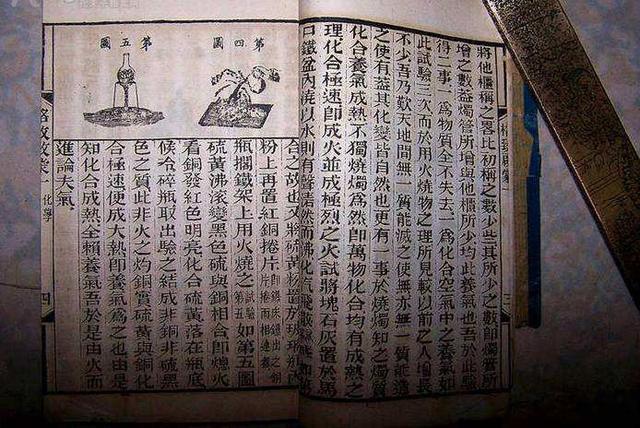 將他櫃稱之畧比初稱之數少些其所少之數即燭管所
增之數葢燭管所增與他櫃所少均此養氣也吾於此驗
得二事一爲物質全不失去一爲化合空氣中之養氣如
此試驗三次而于用火燒物之理所見較以前之人增長
不少吾乃歎天地間無一質能滅之使無亦無一質能造
之使有葢其化變皆自然也更有一事於燒燭知之燭質
化合養氣成熱不獨燒燭爲然即萬物化合均有成熱之
理化合極速即成火並成極烈之火試將塊石灰置於馬
口鐵盆內燒以水則有聲
第四圖
第五圖
合之故也又將硫黃粉置於玻璃瓶
粉上再置紅銅捲片
瓶擱鐵架上用火燒之試驗第五如第五圖
硫黃沸滾變黑色硫與銅相合即熄火
看銅發紅色明亮化合硫黃落在瓶底
候冷碎瓶取出驗之結成非銅非硫黑
色之質此非火之灼銅實硫黃與銅化
合極速便成大熱即養氣爲之也由是
知化合成熱全賴養氣吾於是由火而
進論天氣
格致啟蒙
化學
四
三